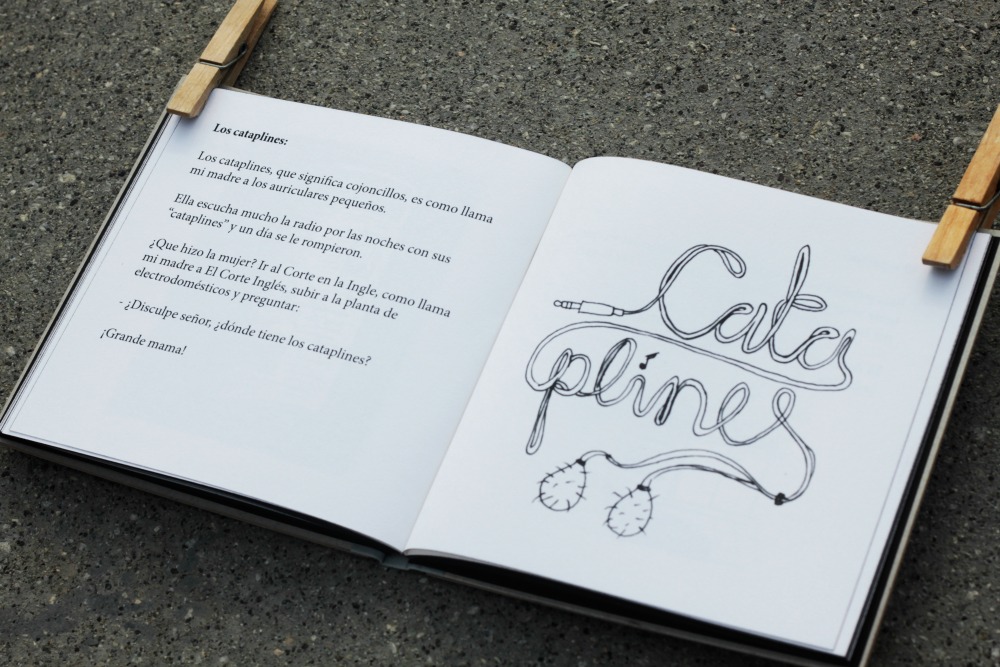 Los cataplines:
Los cataplines, que significa cojoncillos, es como llama
mi madre a los auriculares pequeños.
Ella escucha mucho la radio por las noches con sus
“cataplines” y un día se le rompieron.
¿Que hizo la mujer? Ir al Corte en la Ingle, como llama
mi madre a El Corte Inglés, subir a la planta de
electrodomésticos y preguntar:
- ¿Disculpe señor, ¿dónde tiene los cataplines?
¡Grande mama!
Cata
plines